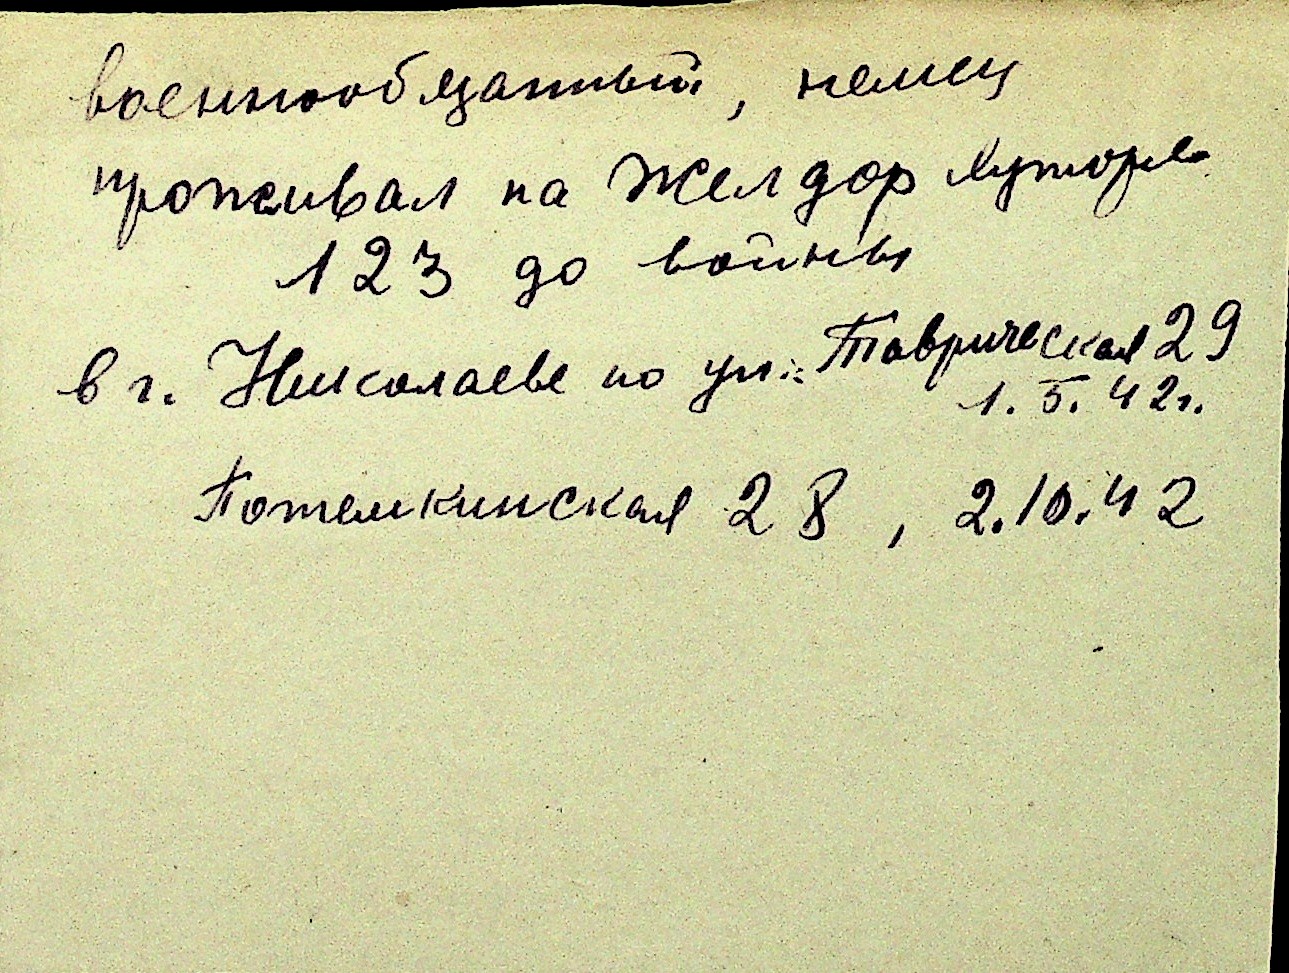 военнообязаный, немец
проживал на Желдор хуторе
123 до войны
в г. Николаеве по ул. Таврическая 29
1.5.42г.
Потемкинская 28, 2.10.42